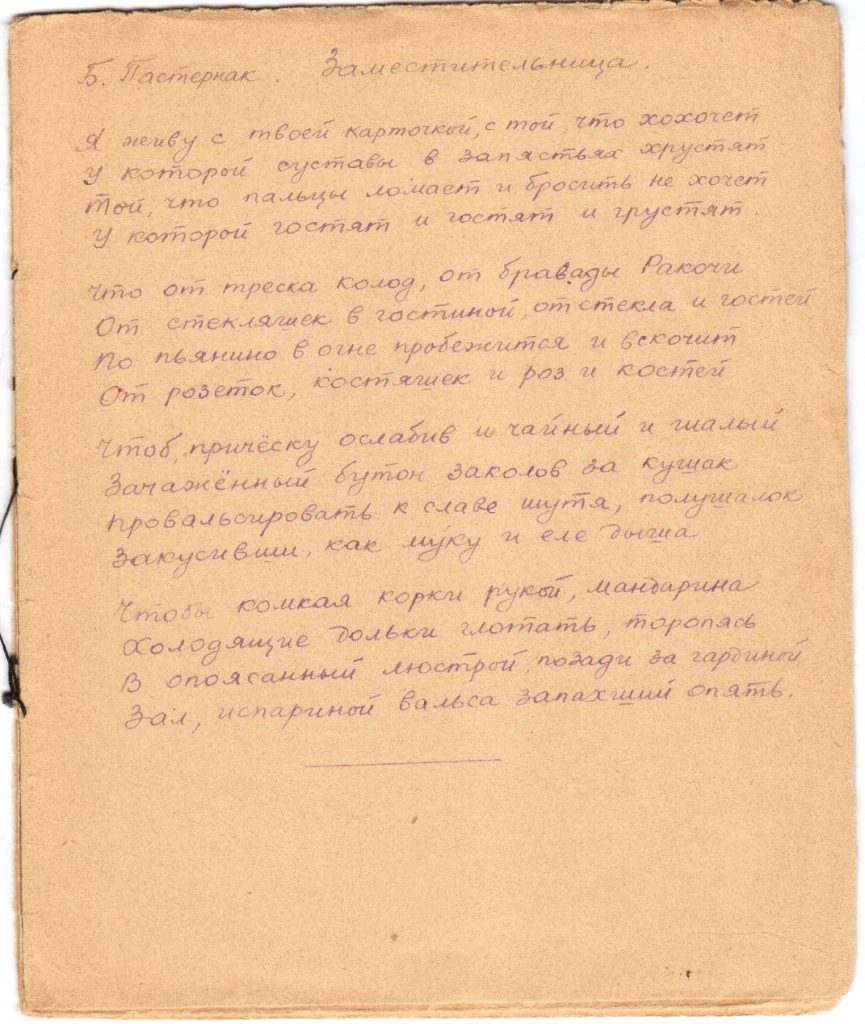 Б. Пастернак. Заместительница.
Я живу с твоей карточкой, с той, что хохочет
У которой суставы в запястьях хрустят
Той, что пальцы ломает и бросить не хочет
У которой гостят и гостят и грустят.
Что от треска колод, от бравады Ракочи
От стекляшек в гостиной, от стекла и гостей
По пьянино в огне пробежится и вскочит
От розеток, костяшек и роз и костей
Чтоб, причёску ослабив и чайный и шалый
Зачажённый бутон заколов за кушак
Провальсировать к славе шутя, полушалок
Закусивши, как му́ку и еле дыша
Чтобы комкая корки рукой, мандарина
Холодящие дольки глотать, торопясь
В опоясанный люстрой, позади за гардиной
Зал, испариной вальса запахший опять.